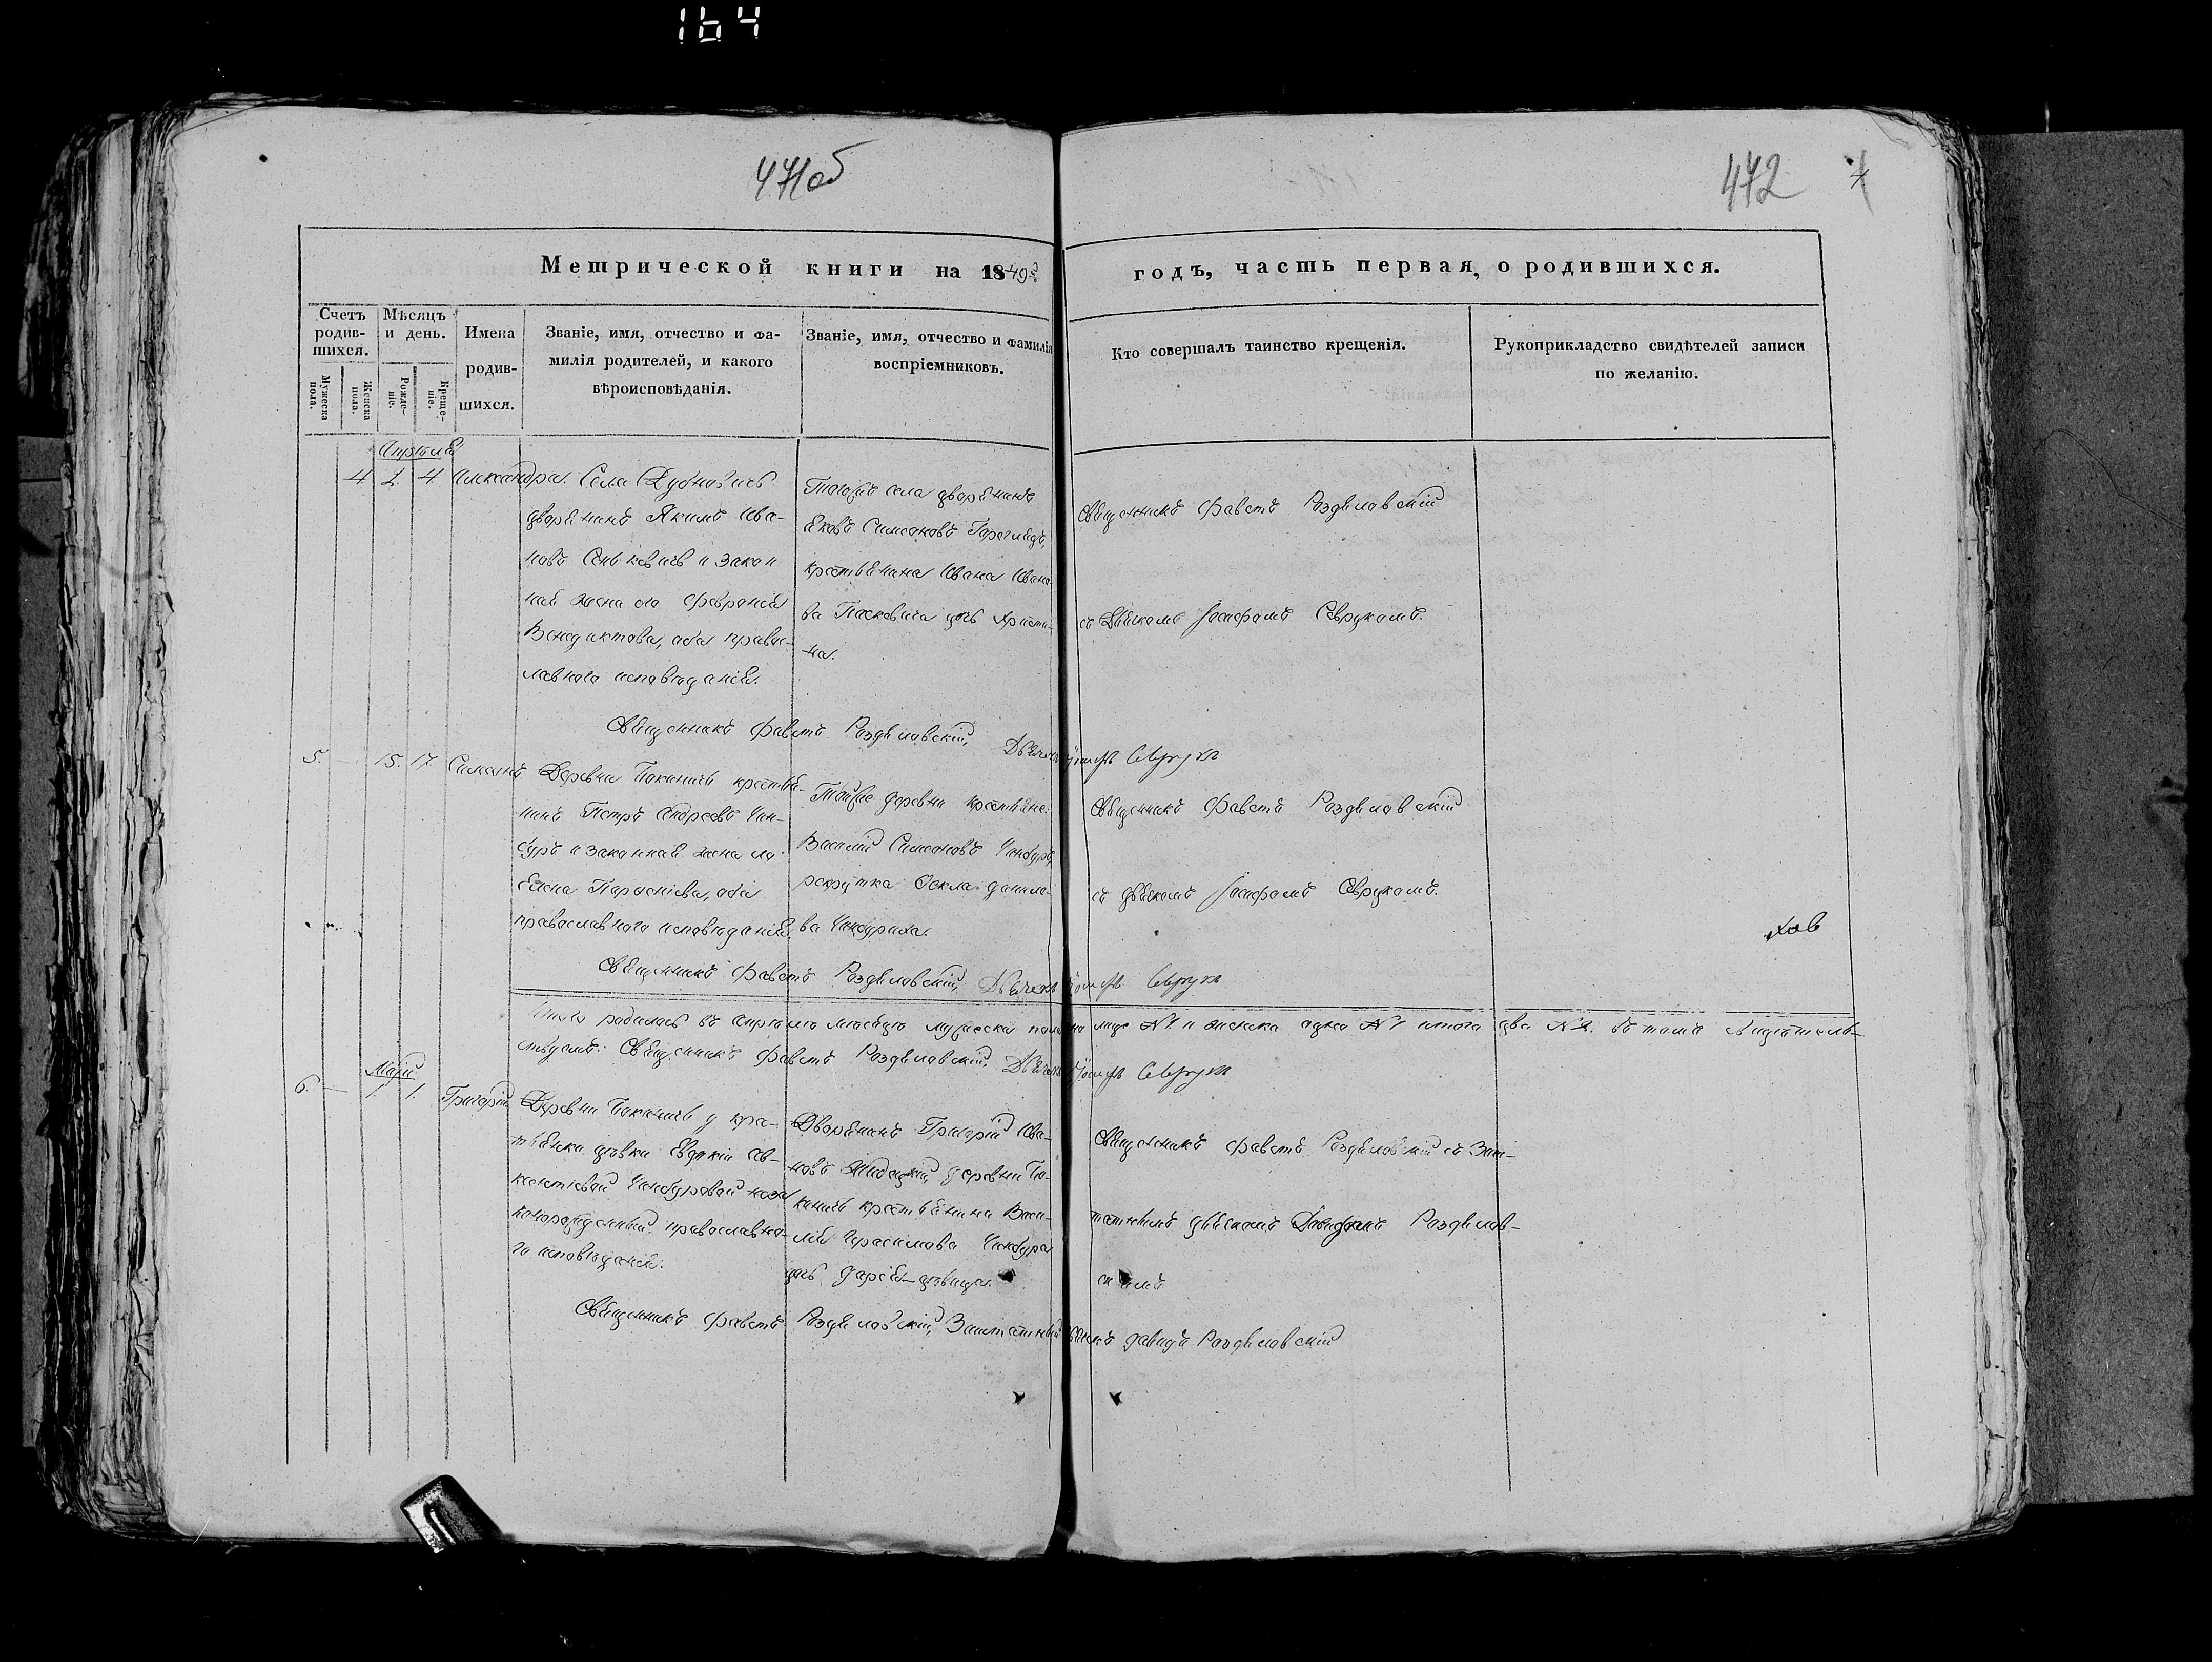 164
471об
472
Метрической книги на 1849й
годъ, часть первая, о родившихся.
Счетъ родив-шихся.
Мужеска пола.
Женска пола.
Мѣсяцъ и день.
Рожде-ніе.
Креще-ніе.
Имена родив-шихся.
Званіе, имя, отчество и фа-
милія родителей, и какого
вѣроисповѣданія.
Званіе, имя, отчество и фамилія
воспріемниковъ.
Кто совершалъ таинство крещенія.
Рукоприкладство свидѣтелей записи
по желанію.
Апрѣль
4 2 4 Александра.
Села
дворянинъ Якимъ Ива-
новъ Сенкевичъ и закон
ная жена его
Венедиктова, оба правос-
лавнаго исповѣданія.
Тогожъ села дворянинъ
Симеоновъ
крестьянина Ивана Ивано-
ва Пасковича дочь Христи-
на.
Священникъ Фавстъ Роздяловскій
съ Дьячкомъ Іосифомъ Севрукомъ.
Священникъ Фавстъ Роздяловскій, Дьячекъ Іосифъ Севрукъ
5. 15. 17. Симеонъ
Деревни крестья-
нинъ Петръ Андреевъ Чин-
буръ и законная жена его
Елена оба
православнаго исповѣданія.
Тойже деревни крестьяне:
Василій Симеоновъ Чинбуръ,
рекрутка Фекла Данило-
ва Чинбуриха.
Священникъ Фавстъ Роздяловскій
съ дьячкомъ Іосифомъ Севрукомъ.
Священникъ Фавстъ Роздяловскій, Дьячекъ Іосифъ Севрукъ
Итого родилось въ Апрѣлѣ мѣсяцѣ мужеска пола №1 и женска одна №1 итого два №2. Въ томъ свидѣтель-
ствуемъ: Священникъ Фавстъ Роздяловскій, Дьячекъ Іосифъ Севрукъ
Май
6. — 1. 1. Григорій
Деревни у крес-
тьянки дѣвки Евдокіи Ав-
Чинбуровой неза
коннорожденный православна-
го исповѣданія.
Дворянинъ Григорій Ива-
новъ деревни
крестьянина Васи-
лія Герасимова Чинбура
дочь Дарія дѣвица.
Священникъ Фавстъ Роздяловскій съ Заш-
татнымъ дьячкомъ Давидомъ Роздялов-
скимъ
Священникъ Фавстъ Роздяловскій, Заштатный дьячекъ Давидъ Роздяловскій